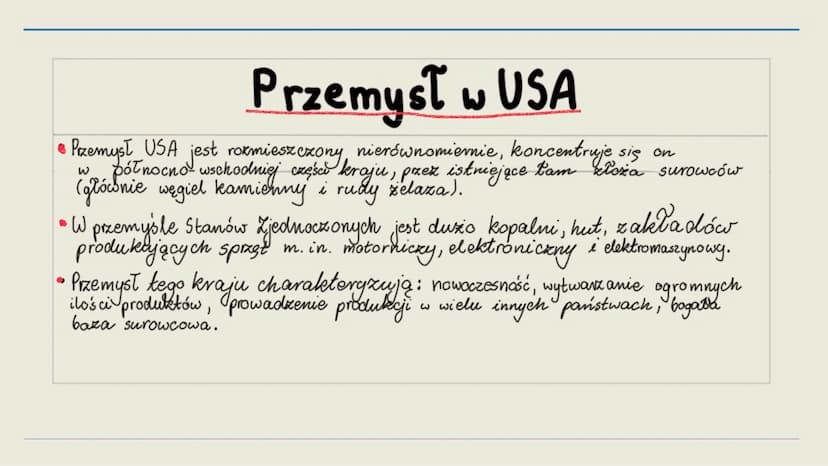 Przemysł w USA
• Przemysł USA jest rozmieszczony nierównomiernie, koncentruje się on
w północno-wschodniej części kraju, przez istniejące tam złoża surowców
(głównie węgiel kamienny i rudy żelaza).
• W przemyśle Stanów Zjednoczonych jest dużo kopalni, hut, zakładów
produkujących sprzęt m.in. motorniczy, elektroniczny i elektromaszynowy.
• Przemysł tego kraju charakteryzują: nowoczesność, wytwarzanie ogromnych
ilości produktów, prowadzenie produkcji w wielu innych państwach, bogata
baza surowcowa.